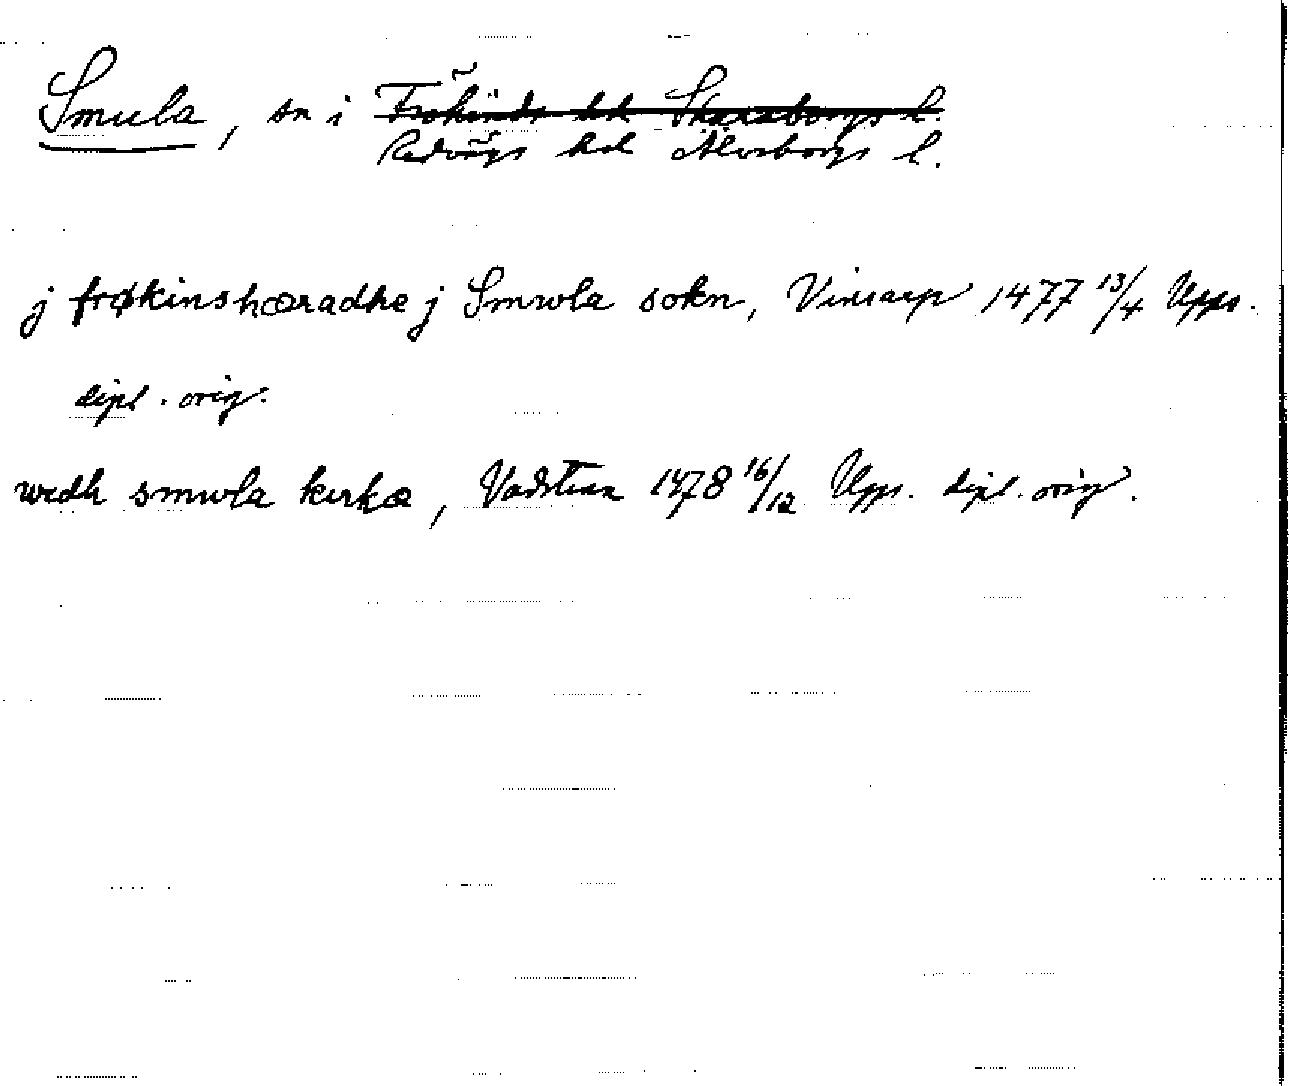 Smula, sn i Frökinds hd Skaraborgs l
Redvägs hd Älvsborgs l.
j frøkinshæradhe j Smwla sokn, Vinsarp 1477 13/4 Upps.
dipl. orig.
wedh smwla kirkæ, Vadstena 1478 16/12 Upps. dipl. orig.